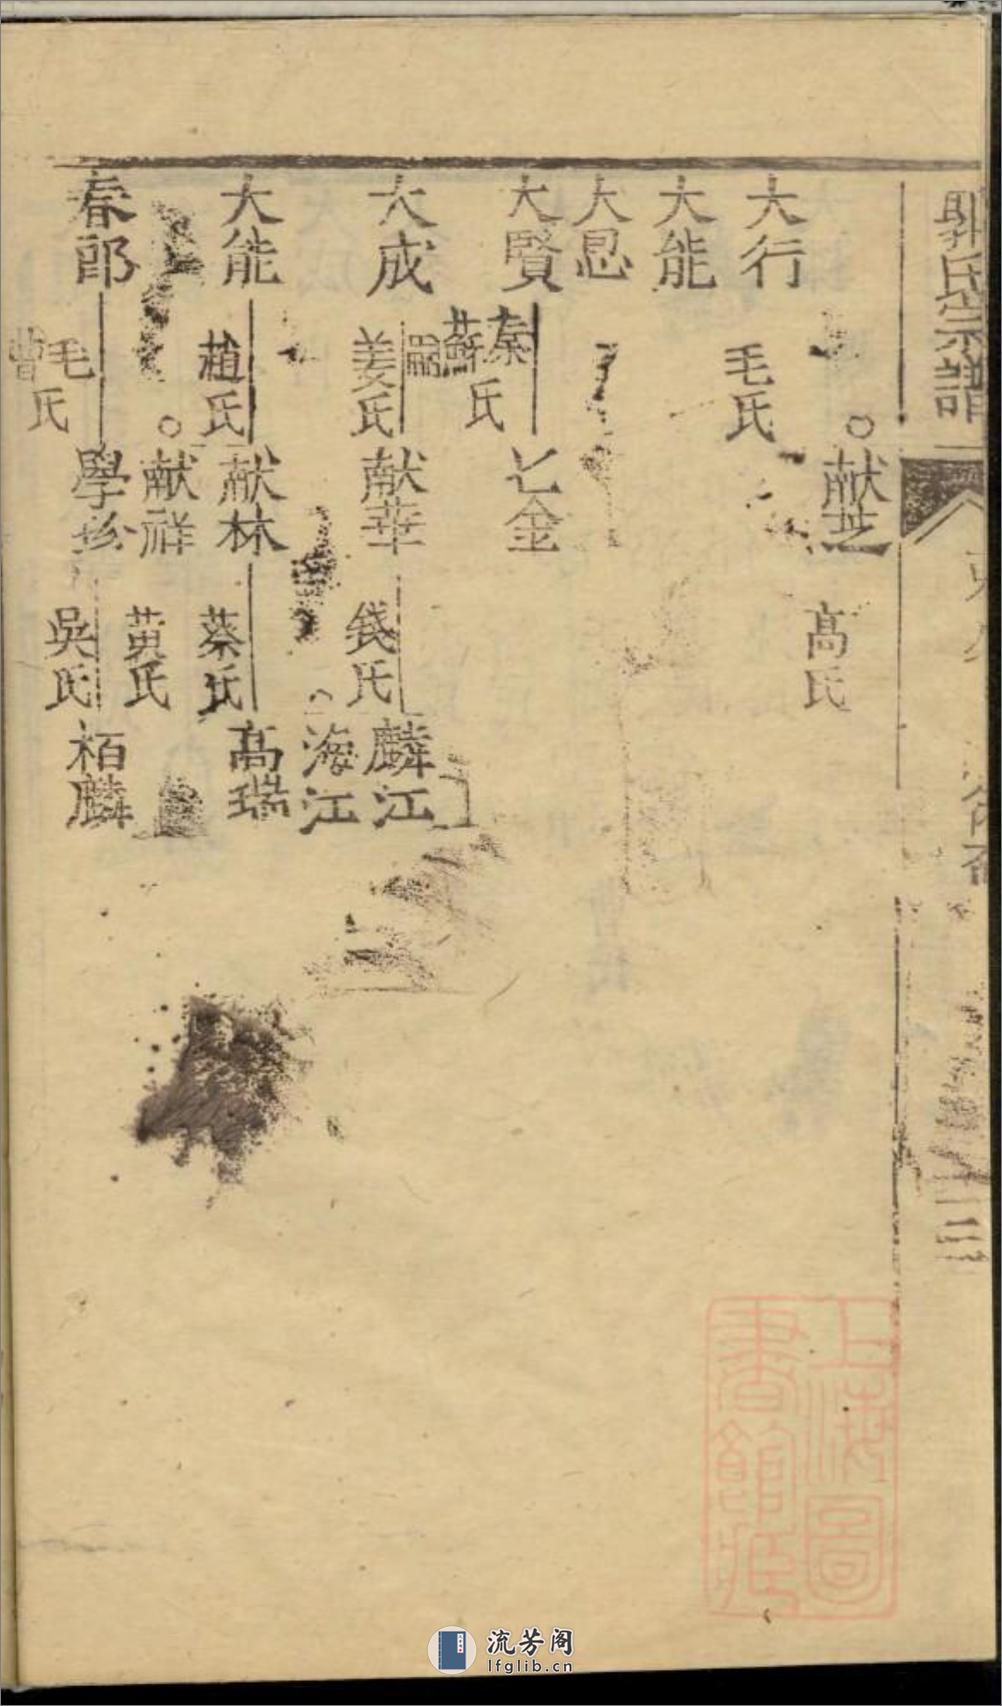 郭氏宗譜
献芝
高氏
大行
毛氏
大能
大恩
大賢
秦蘇氏
七金
大成
姜氏
献華
錢氏
麟江
海江
大能
趙氏
献林
蔡氏
高瑞
献祥
黄氏
春郎
毛曹氏
學
吳氏
栢麟
上海圖書館藏
流芳阁
lfglib.cn